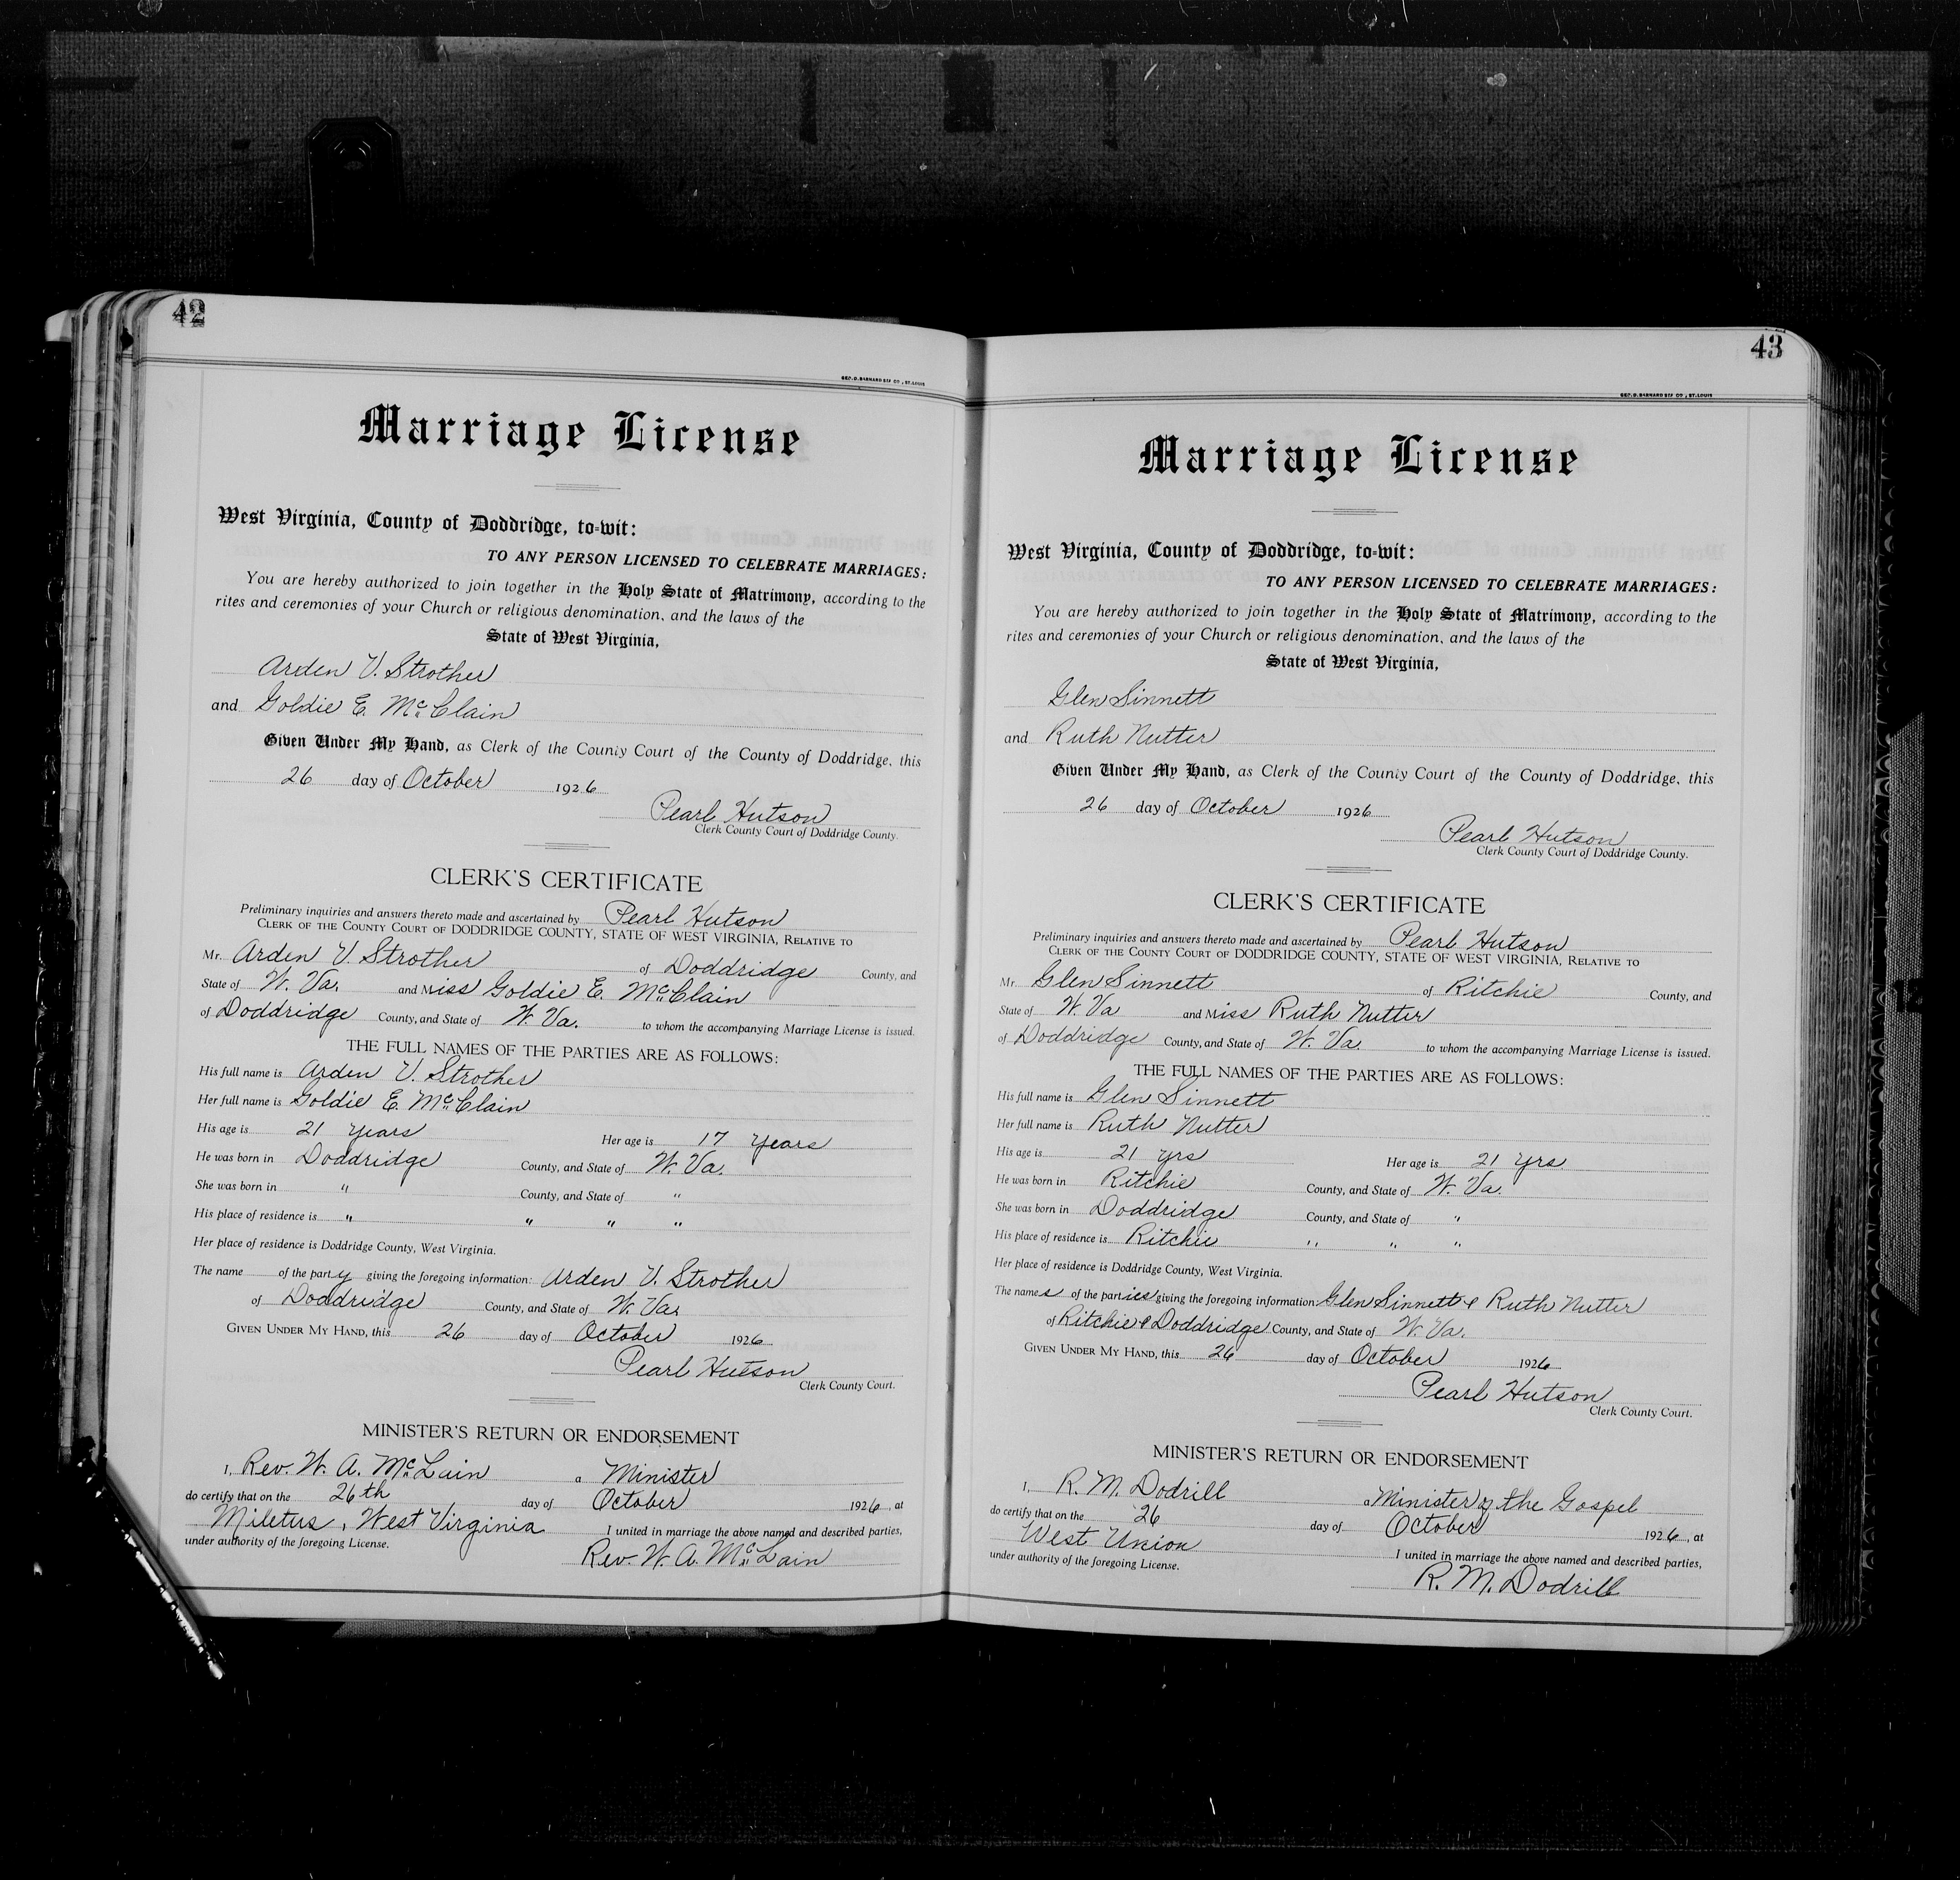 42
GEO. D. BARNARD STA CO., ST. LOUIS
Marriage License
West Virginia, County of Doddridge, to-wit:
TO ANY PERSON LICENSED TO CELEBRATE MARRIAGES:
You are hereby authorized to join together in the Holy State of Matrimony, according to the
rites and ceremonies of your Church or religious denomination, and the laws of the
State of West Virginia,
Arden V. Strother
and Goldie E. McClain
Given Under My Hand, as Clerk of the County Court of the County of Doddridge, this
26 day of October 1926
Pearl Hutson
Clerk County Court of Doddridge County.
CLERK'S CERTIFICATE
Preliminary inquiries and answers thereto made and ascertained by Pearl Hutson
CLERK OF THE COUNTY COURT OF DODDRIDGE COUNTY, STATE OF WEST VIRGINIA, RELATIVE TO
Mr. Arden V. Strother of Doddridge County, and
State of W. Va. and Miss Goldie E. McClain
of Doddridge County, and State of W. Va. to whom the accompanying Marriage License is issued.
THE FULL NAMES OF THE PARTIES ARE AS FOLLOWS:
His full name is Arden V. Strother
Her full name is Goldie E. McClain
His age is 21 years Her age is 17 years
He was born in Doddridge County, and State of W. Va.
She was born in " County, and State of "
His place of residence is " " " "
Her place of residence is Doddridge County, West Virginia.
The name of the party giving the foregoing information: Arden V. Strother
of Doddridge County, and State of W. Va.
GIVEN UNDER MY HAND, this 26 day of October 1926
Pearl Hutson
Clerk County Court.
MINISTER'S RETURN OR ENDORSEMENT
I, Rev. W. A. McLain a Minister
do certify that on the 26th day of October 1926, at
Miletus, West Virginia I united in marriage the above named and described parties,
under authority of the foregoing License.
Rev. W. A. McLain
43
GEO. D. BARNARD STA CO., ST. LOUIS
Marriage License
West Virginia, County of Doddridge, to-wit:
TO ANY PERSON LICENSED TO CELEBRATE MARRIAGES:
You are hereby authorized to join together in the Holy State of Matrimony, according to the
rites and ceremonies of your Church or religious denomination, and the laws of the
State of West Virginia,
Glen Sinnett
and Ruth Nutter
Given Under My Hand, as Clerk of the County Court of the County of Doddridge, this
26 day of October 1926
Pearl Hutson
Clerk County Court of Doddridge County.
CLERK'S CERTIFICATE
Preliminary inquiries and answers thereto made and ascertained by Pearl Hutson
CLERK OF THE COUNTY COURT OF DODDRIDGE COUNTY, STATE OF WEST VIRGINIA, RELATIVE TO
Mr. Glen Sinnett of Ritchie County, and
State of W. Va and Miss Ruth Nutter
of Doddridge County, and State of W. Va. to whom the accompanying Marriage License is issued.
THE FULL NAMES OF THE PARTIES ARE AS FOLLOWS:
His full name is Glen Sinnett
Her full name is Ruth Nutter
His age is 21 yrs Her age is 21 yrs
He was born in Ritchie County, and State of W. Va.
She was born in Doddridge County, and State of "
His place of residence is Ritchie " " "
Her place of residence is Doddridge County, West Virginia.
The names of the parties giving the foregoing information: Glen Sinnett & Ruth Nutter
of Ritchie & Doddridge County, and State of W. Va.
GIVEN UNDER MY HAND, this 26 day of October 1926
Pearl Hutson
Clerk County Court.
MINISTER'S RETURN OR ENDORSEMENT
I, R. M. Dodrill a Minister of the Gospel
do certify that on the 26 day of October 1926, at
West Union I united in marriage the above named and described parties,
under authority of the foregoing License.
R. M. Dodrill